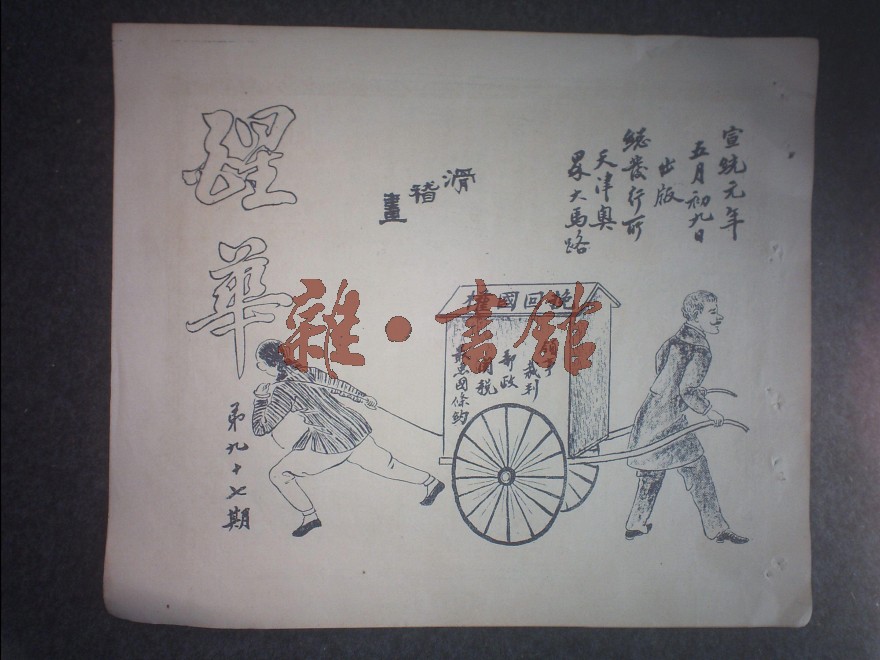 宣統元年
五月初九日
出版
總發行所
天津奧
界大馬路
滑稽畫
醒華
第九十七期
挽回國權
裁判
郵政
關稅
最惠國條約
雜·書館